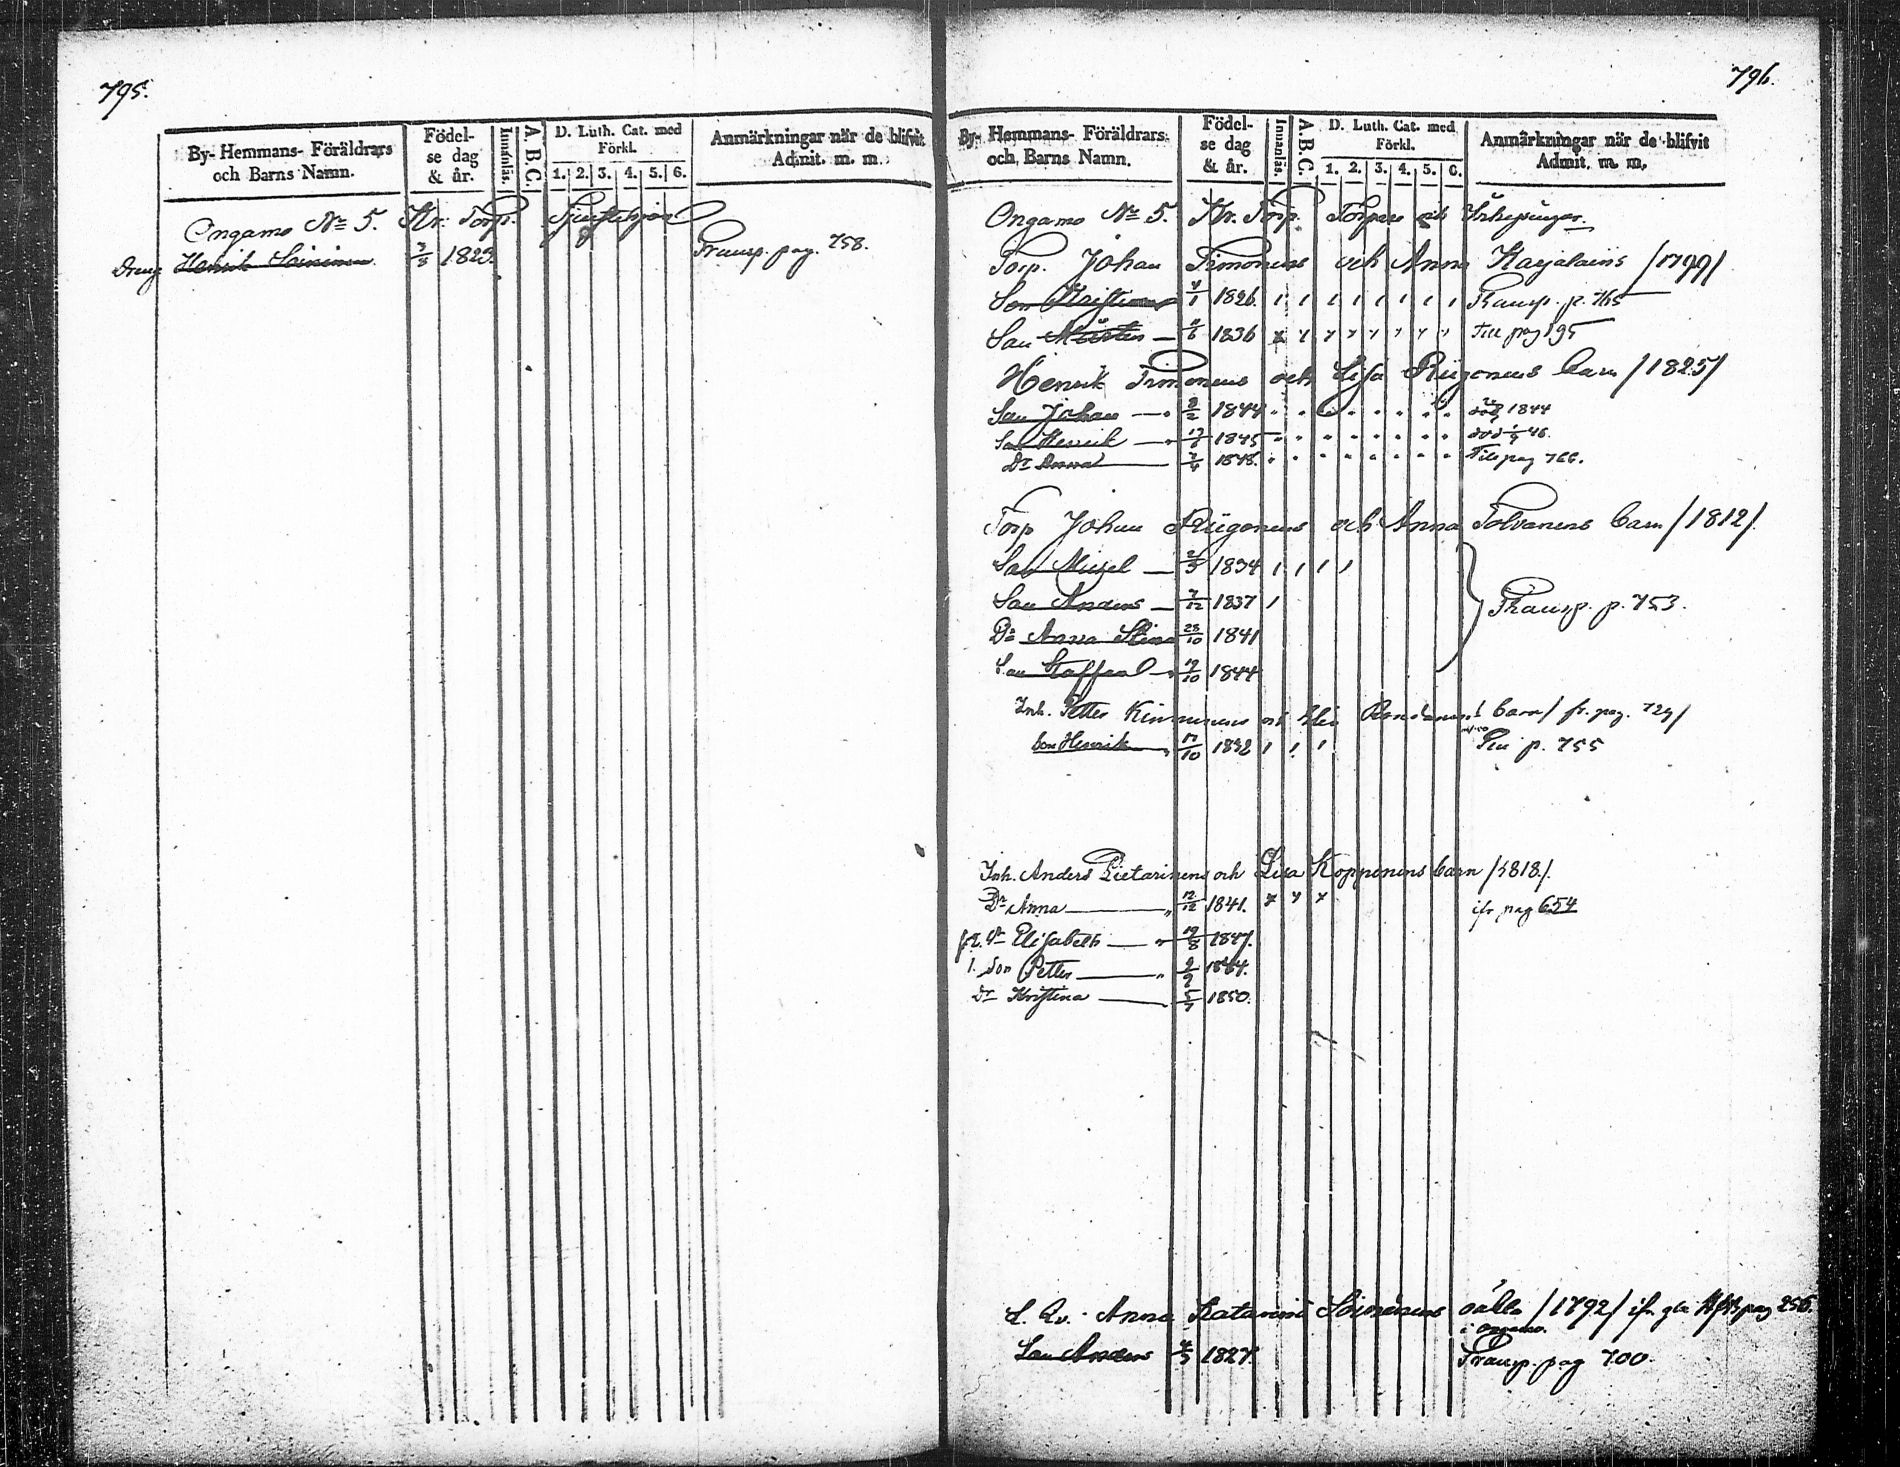 795.
By- Hemmans- Föräldrars och Barns Namn.
Födelse dag & år.
Innanläs.
A. B. C.
D. Luth. Cat. med Förkl.
1. 2. 3. 4. 5. 6.
Anmärkningar när de blifvit Admit. m. m.
Ongamo No 5. Kr. Torp.
Dreng Henrik Soininen 1823. Transp. pag. 758.
796.
By- Hemmans- Föräldrars och Barns Namn.
Födelse dag & år.
Innanläs.
A. B. C.
D. Luth. Cat. med Förkl.
1. 2. 3. 4. 5. 6.
Anmärkningar när de blifvit Admit. m. m.
Ongamo No 5. Kr. Torp. Torpare och
Torp. Johan Timonens och Anna Karjalains /1799/
Son 1826. Transp. p. 765
Son 1836 Till pag 195
Henrik Timonens och Lisa Riigonens barn /1825/
Son Johan 8/2 1844 död 1844
Son Henrik 1845 död 46.
Dr Anna 1848. Till pag 766.
Torp Johan Riigonens och Anna Tolvanens barn /1812/.
Son Micel 1834
Son Anders 7/12 1837 Transp. p. 753.
Dr Anna Stina 25/10 1841
Son Staffan 19/10 1844
Inh. Petter Kinnunens och barn / fr. pag. 729/
Son Henrik 17/10 1832 p. 755
Inh. Anders Pietarinens och Lisa Kopponens barn /1818/.
Dr Anna 12/12 1841. ifr pag 654
2. Dr Elisabeth 19/8 1847.
1. Son Petter 9/9 1844.
Dr Kristina 5/7 1850.
Anna Katarina Soininens /1792/ ifr pag 256.
i Ongamo.
Son Anders 1827. Transp. pag 700.